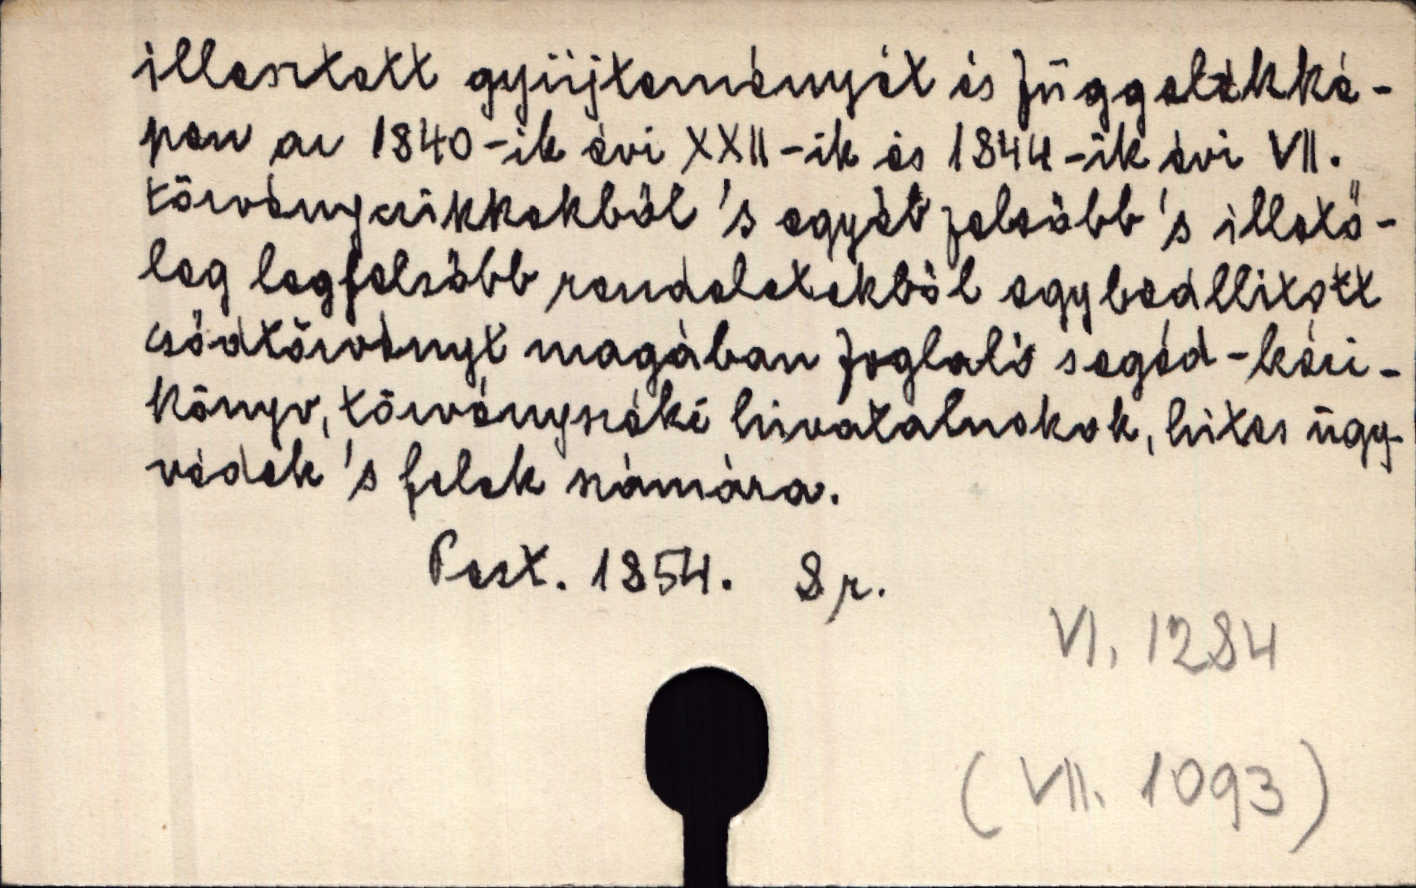 illesztett gyüjteményét és függelékké-
pen az 1840-ik évi XXII-ik és 1844-ik évi VII.
törvényczikkekből 's egyéb felsőbb 's illető-
leg legfelsőbb rendeletekből egybeállitott
csődtörvényt magában foglaló segéd-kézi-
könyv, törvényszéki hivatalnokok, hites ügy-
védek 's felek számára.
Pest. 1854. 8 r.
VI. 1284
(VII. 1093)